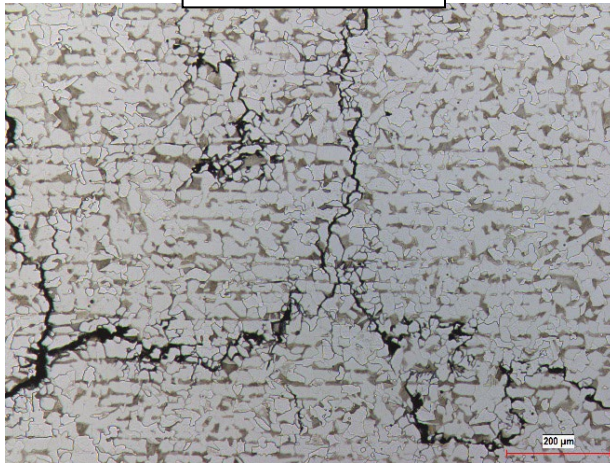 200 µm